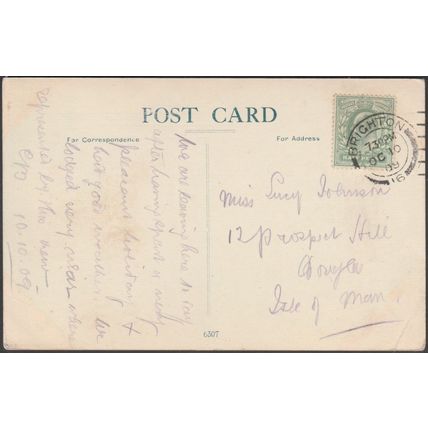 POST CARD
For Correspondence
For Address
BRIGHTON
7.30PM
OC 10
09
16
We are leaving here to day
after having spent a nice
pleasant holiday &
had good weather we
lodged very near where
represented by this view
10.10.09.
Miss Lucy Johnson
12 Prospect Hill
Douglas
Isle of Man
6307